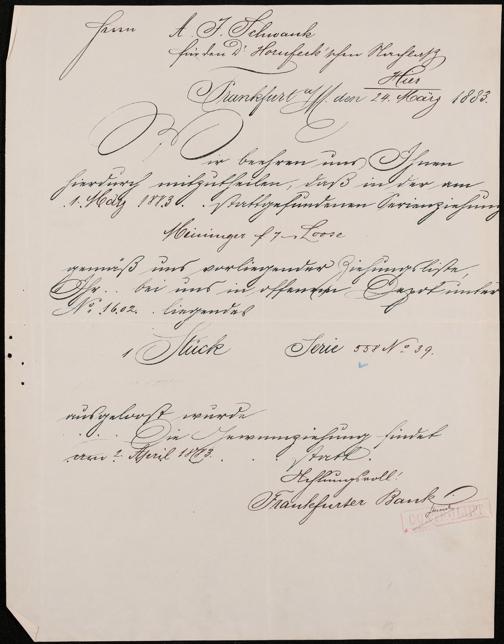 Herrn A. J. Schwank
für den Dr Hornfeck'schen Nachlaß
Hier
Frankfurt a/M. den 24. März 1883.
Wir beehren uns Ihnen
hierdurch mitzutheilen, daß in der am
1. März 1883. . stattgefundenen Serienziehung
Meininger f 7 Loose
gemäß uns vorliegender Ziehungsliste,
Ihr . . bei uns in offenem Depot unter
No. 1602. . liegendes
1 Stück Serie 558 No. 39.
ausgeloost wurde
. . . . Die Gewinnziehung findet
am 2. April 1883. . . statt.
Achtungsvoll!
Frankfurter Bank.
CONTROLIRT